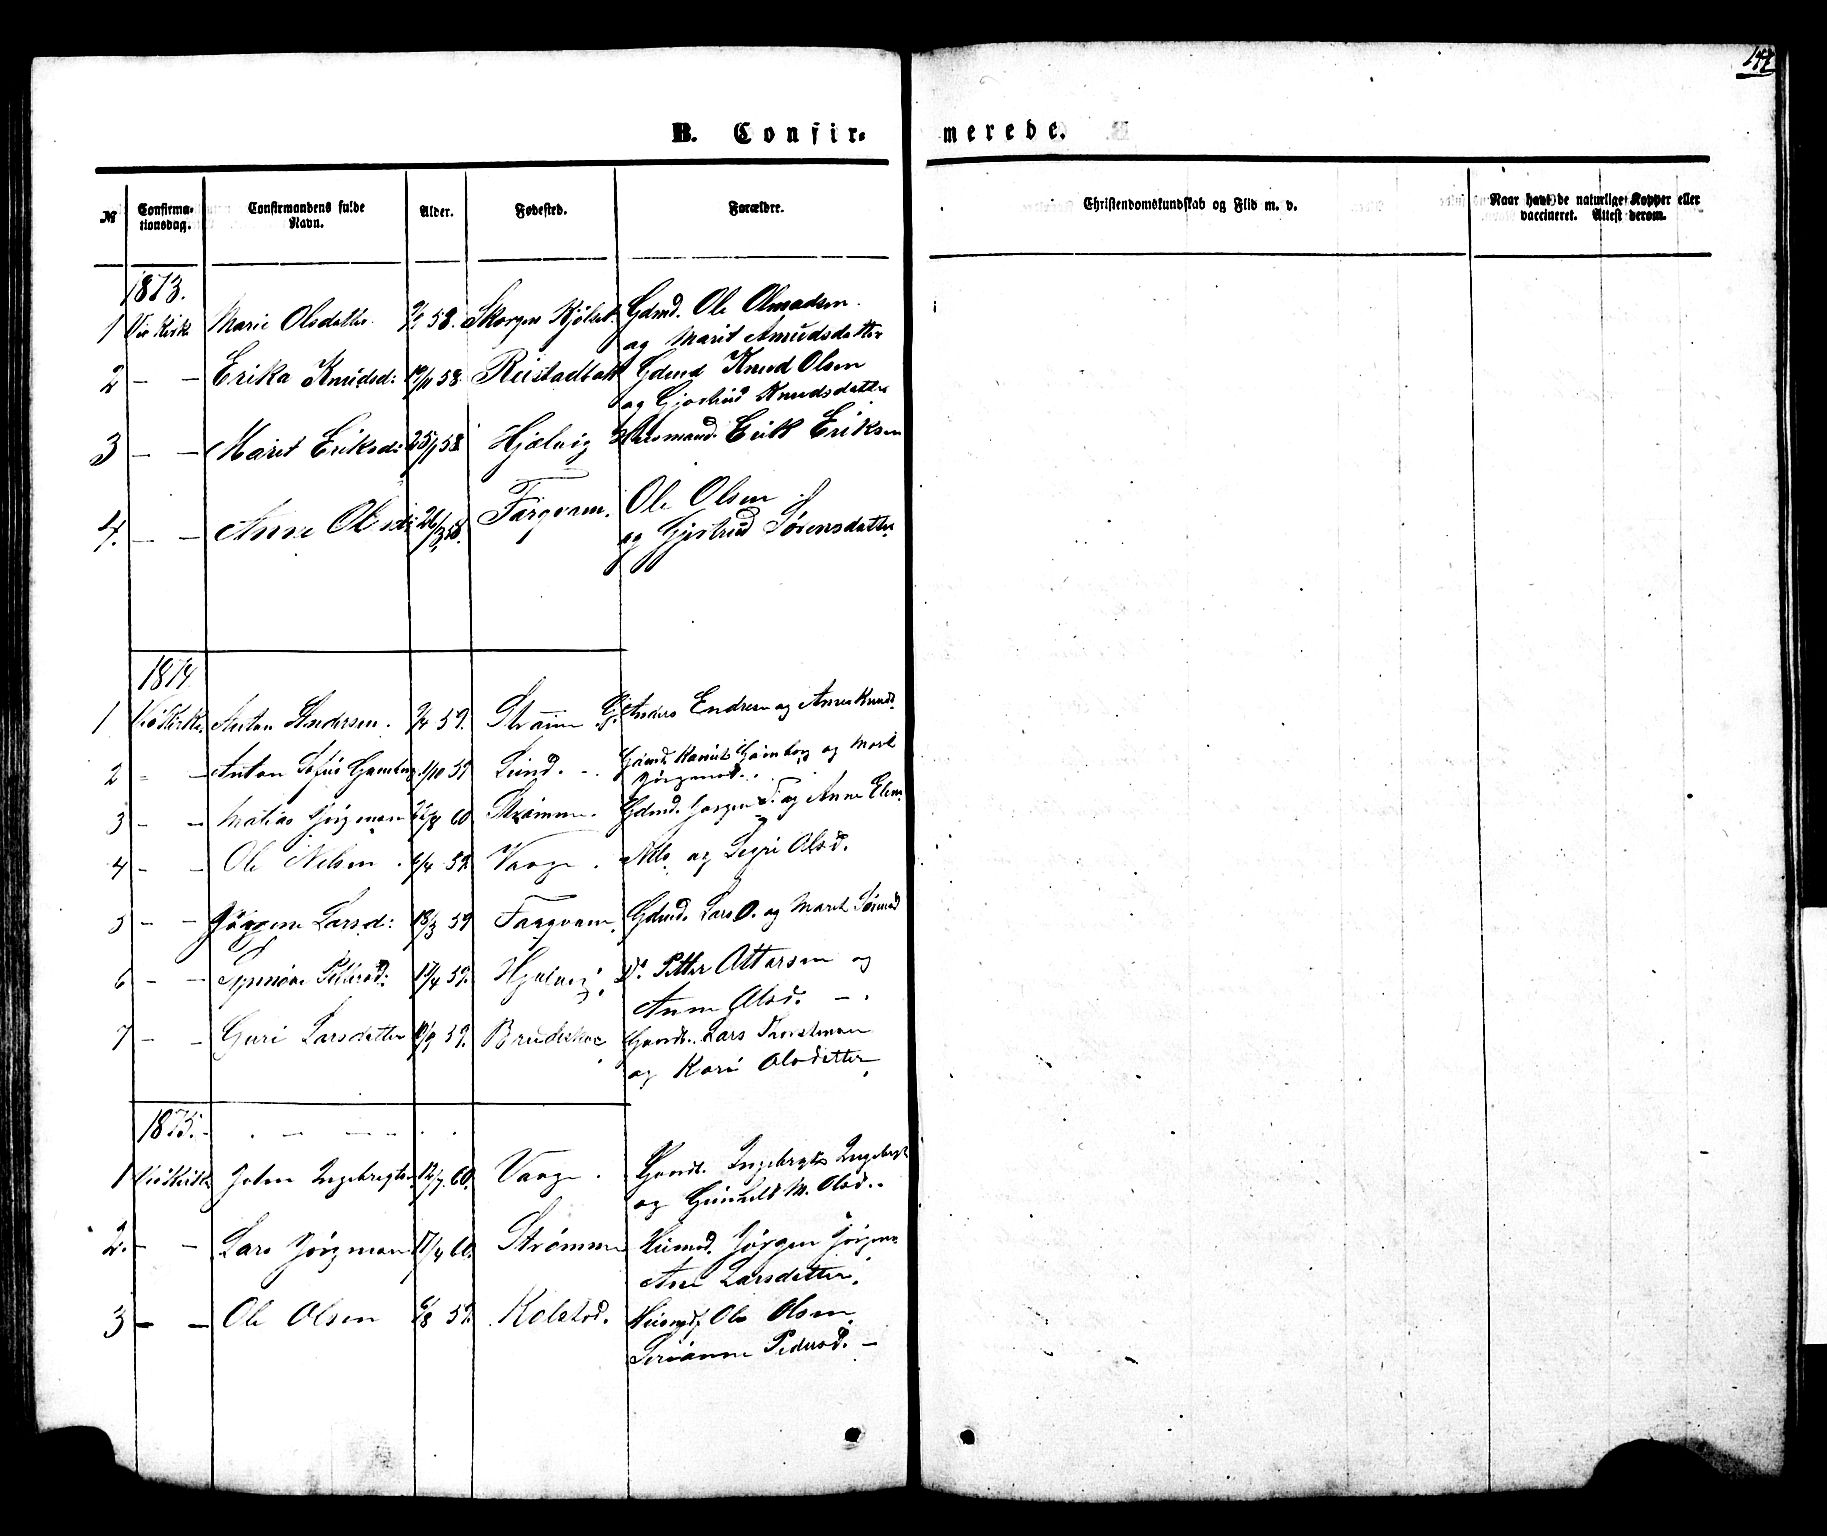 B. Confir= merede.
№ Confirma=tionsdag. Confirmandens fulde Navn. Alder. Fødested. Forældre. Christendomskundskab og Flid m. v. Naar havt de naturlige Kopper eller vaccineret. Attest derom.
1873.
1 Marie Olsdatter. 58. Skorgen Kjölset. Gdmd. Ole Olmadsen.
og Marit Amundsdatter
2 – – Erika Knudsd: 58. Gdmd Knud Olsen
og Gjertrud Knudsdatter
3 – – Marit Eriksd: 25/1 58 Hjelvig Erik Eriksen
4. – – Anne Olsd: 26/3 58. Fargvam. Ole Olsen
og Gjertrud Sörensdatter
1874
1 Anton Andersen. 59. Strömme Anders Endresen og Anne Knuds.
2 – – Anton Sofus 1/10 59 Lund. og Marit
Jörgensd.
3 – – Matias Jörgensen 60 Strömme. Gdmd. Jörgen og Anne Elen
4 – – Ole Nilsen. 59. Vaage. Nils og Segri Olsd.
5 – – Jörgine Larsd: 18/3 59 Fargvam. Gdmd. Lars O. og Marit Sörensd
6 – – Synnöve Pettersd: 59. Hjelvig. Do. Petter Ottarsen og
Anne Olsd. –
7 – – Guri Larsdatter 59. Gaardb. Lars Thorstensen
og Kari Olsdatter
1875. –
1 Johan Ingebrigts. 12/7 60. Vaage. Gaardb. Ingebrigt Ingebrigt
og Gunhild M. Olsd.
2. – – Lars Jörgensen 17/4 60. Strömme Huusmd. Jörgen Jörgens
Ane Larsdatter.
3 – – Ole Olsen 59. Kolstad. Huusmd. Ole Olsen
Serianne Pedersd. –